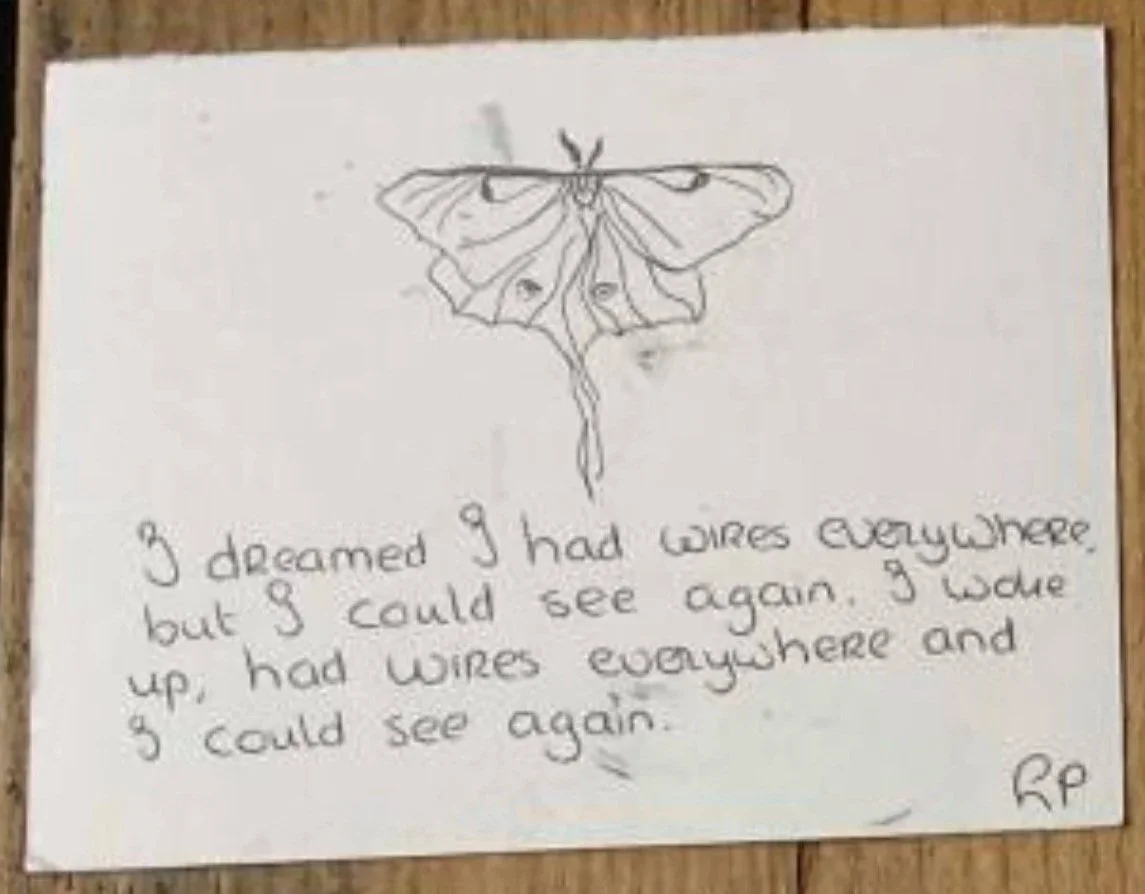 I dreamed I had wires everywhere,
but I could see again. I woke
up, had wires everywhere and
I could see again.
RP